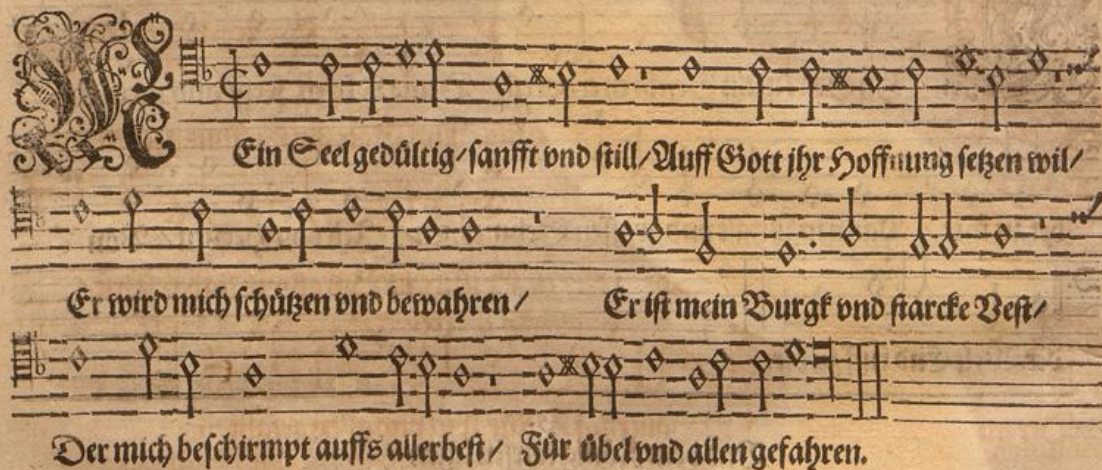 MEin Seel gedültig/ sanfft vnd still/ Auff Gott jhr Hoffnung setzen wil/
Er wird mich schützen vnd bewahren/ Er ist mein Burgk vnd starcke Vest/
Der mich beschirmpt auffs allerbest/ Für übel vnd allen gefahren.